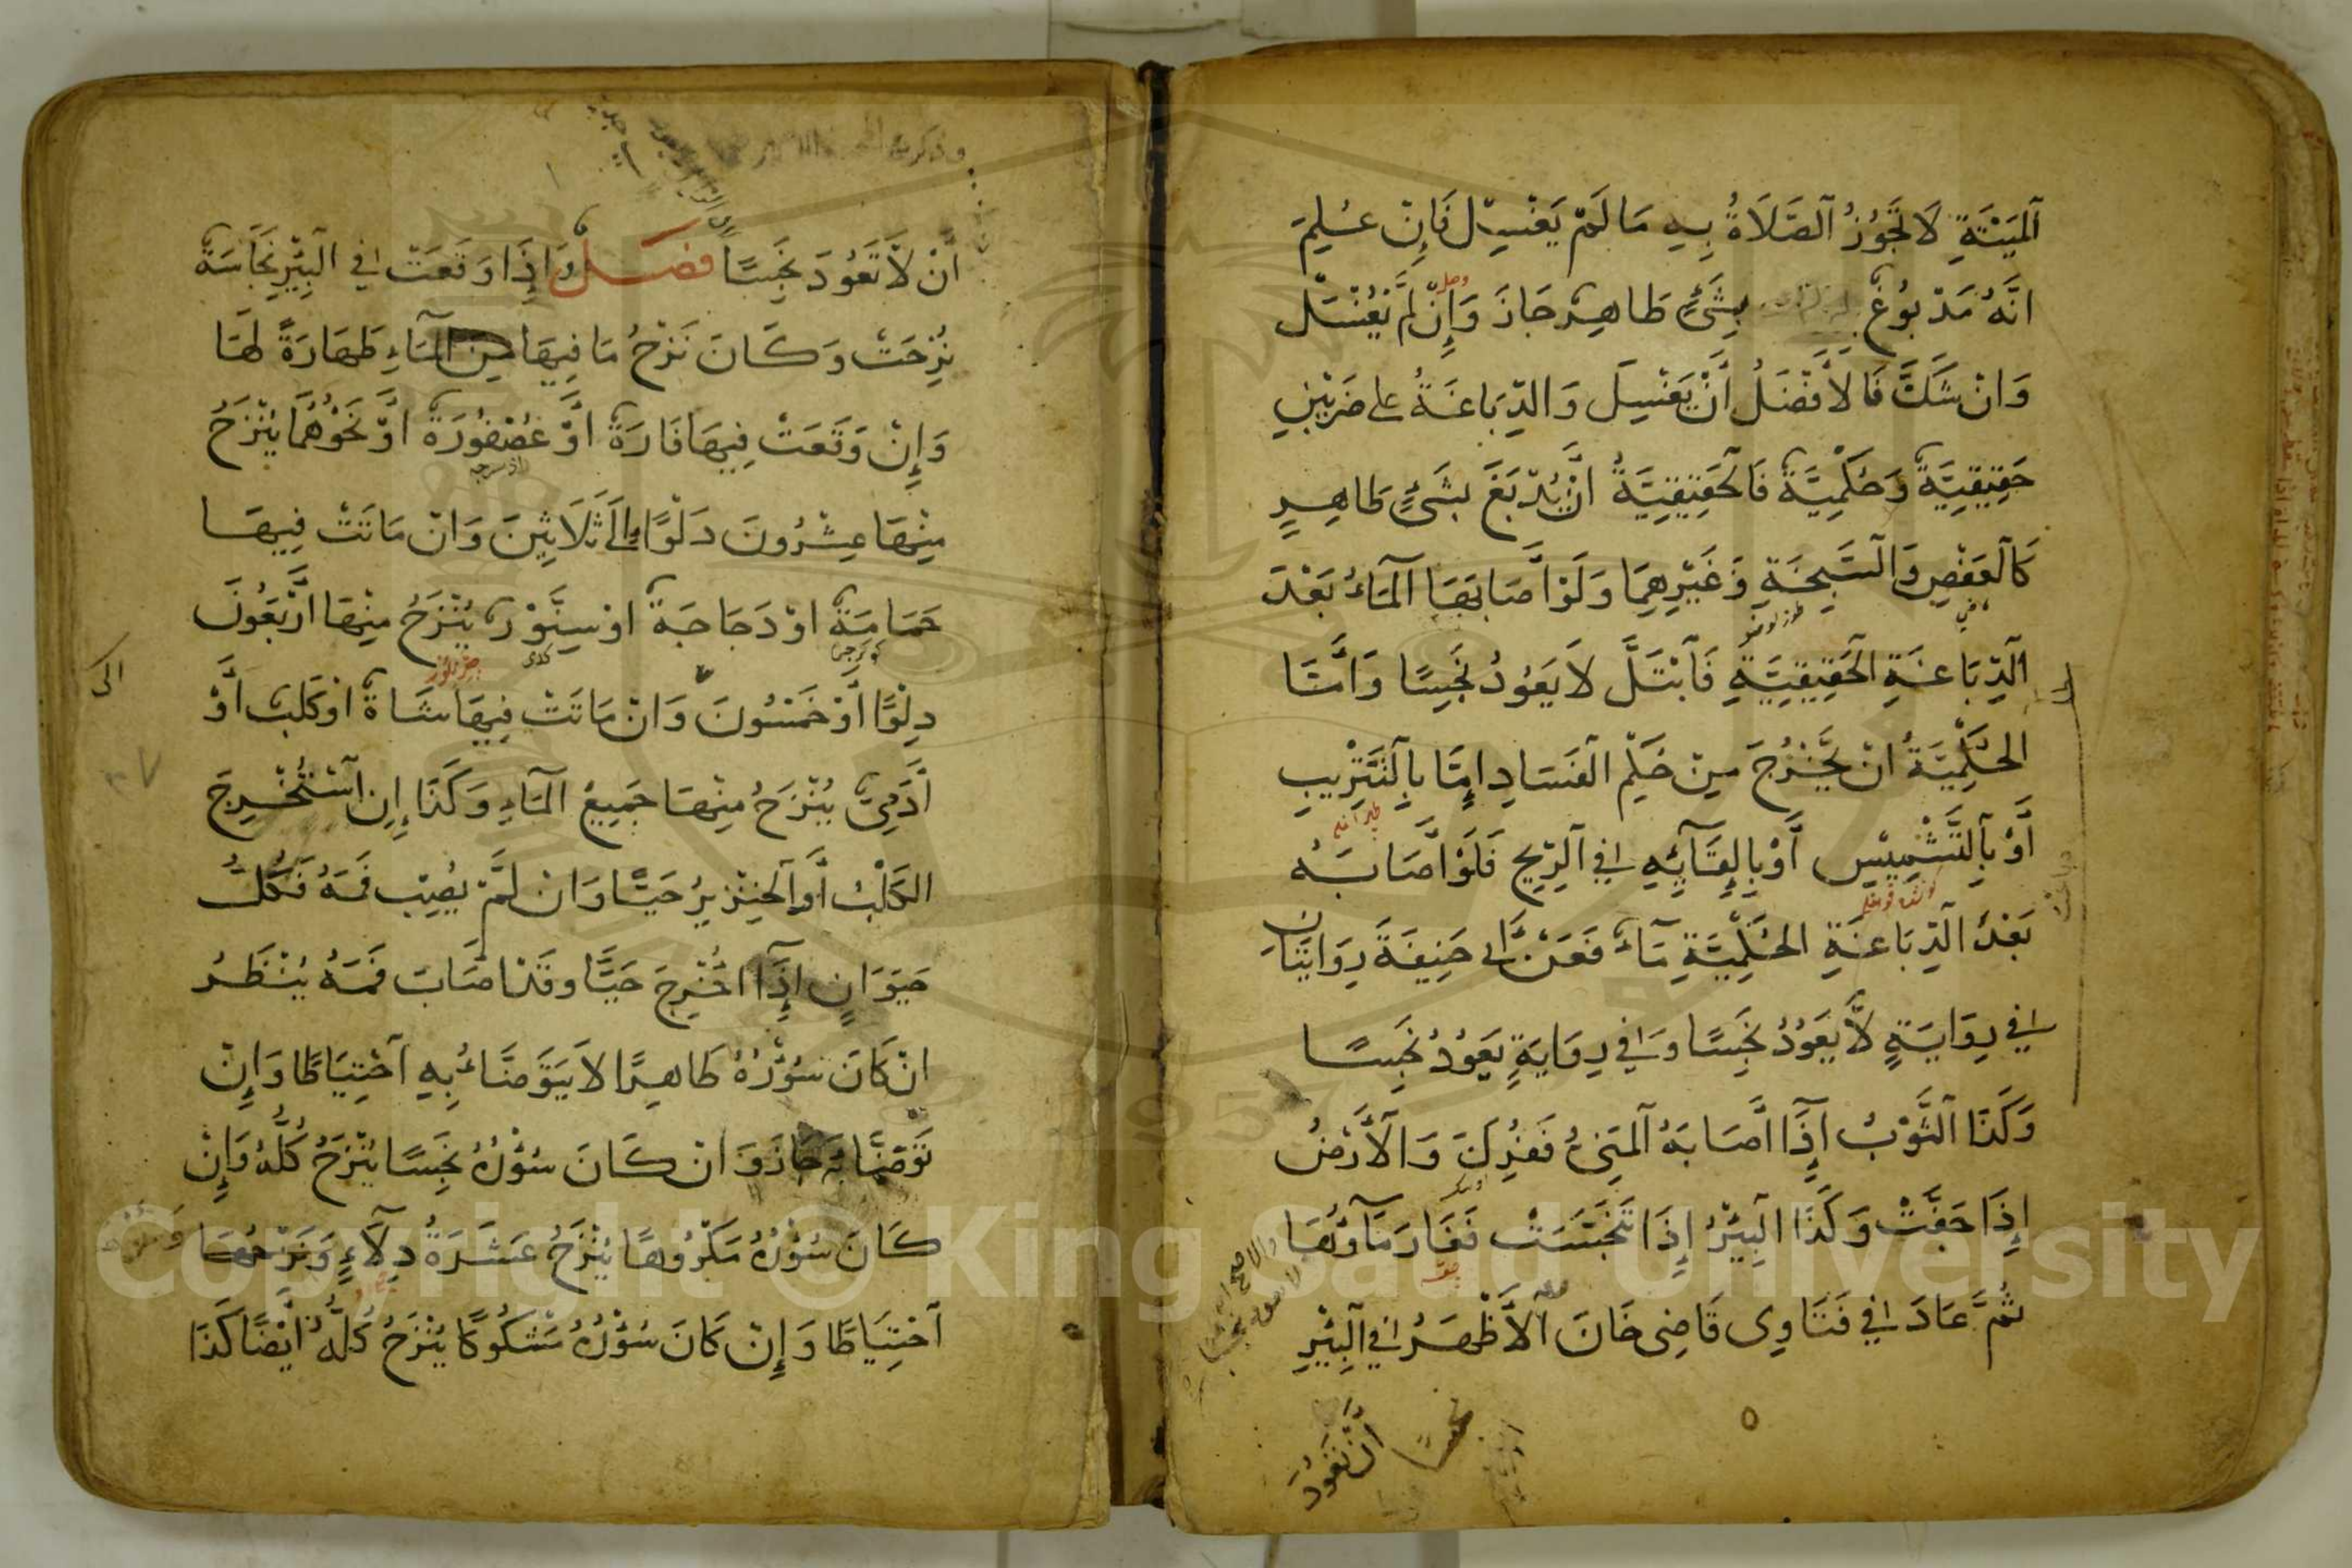 اَلْمَيْتَةِ لَا تَجُوزُ اَلصَّلَاةُ بِهِ مَا لَمْ يَغْسِلْ فَاِنْ عُلِمَ
انَّهُ مَدْبُوغٌ بِشَىْءٍ طَاهِرٍ جَازَ وَاِنْ لَمْ يُغْسَلْ
وَانْ شَكَّ فَالْأَفْضَلُ أَنْ يَغْسِلَ وَالدِّبَاغَةُ على ضَرْبَيْنِ
حَقِيقِيَّةٌ وَحُكْمِيَّةٌ فَالْحَقِيقِيَّةُ انْ يُدْبَغَ بِشَىْءٍ طَاهِرٍ
كَالْعَفْصِ وَالسَّبِخَةِ وَغَيْرِهِمَا وَلَوْ اَصَابَهَا اَلْمَاءُ بَعْدَ
اَلدِّبَاغَةِ الْحَقِيقِيَّةِ فَابْتَلَّ لَا يَعُودُ نَجِسًا وَاَمَّا
الْحُكْمِيَّةُ انْ يَخْرُجَ مِنْ حُكْمِ الْفَسَادِ اِمَّا بِالتَّتْرِيبِ
أَوْ بِالتَّشْمِيسِ أَوْ بِالْقَائِهِ فِي الرِّيحِ فَلَوْ اَصَابَهُ
بَعْدَ الدِّبَاغَةِ الْحُكْمِيَّةِ مَاءٌ فَعَنْ اَبى حَنِيفَةَ رِوَايَتَانِ
فِي رِوَايَةٍ لَا يَعُودُ نَجِسًا وَفِي رِوَايَةٍ يَعُودُ نَجِسًا
وَكَذَا الثَّوْبُ اِذَا اَصَابَهُ الْمَنِىُّ فَفُرِكَ وَالْأَرْضُ
اِذَا جَفَّتْ وَكَذَا الْبِئْرُ اِذَا تَنَجَّسَتْ فَغَارَ مَاؤُهَا
ثُمَّ عَادَ فِي فَتَاوِى قَاضِى خَانَ اَلْأَظْهَرُ فِي الْبِئْرِ
اَنْ لَا تَعُودَ نَجِسًا فصل وَاِذَا وَقَعَتْ فِي الْبِئْرِ نَجَاسَةٌ
نُزِحَتْ وَكَانَ نَزْحُ مَا فِيهَا مِنَ الْمَاءِ طَهَارَةً لَهَا
وَاِنْ وَقَعَتْ فِيهَا فَارَةٌ اَوْ عُصْفُورَةٌ اَوْ نَحْوُهُمَا يُنْزَحُ
مِنْهَا عِشْرُونَ دَلْوًا اِلَى ثَلَاثِينَ وَانْ مَاتَتْ فِيهَا
حَمَامَةٌ اوْ دَجَاجَةٌ اوْ سِنَّوْرٌ يُنْزَحُ مِنْهَا اَرْبَعُونَ
دَلْوًا اَوْ خَمْسُونَ وَانْ مَاتَتْ فِيهَا شَاةٌ اوْ كَلْبٌ اَوْ
آدَمِىٌّ يُنْزَحُ مِنْهَا جَمِيعُ الْمَاءِ وَكَذَا اِنِ اسْتُخْرِجَ
الْكَلْبُ اَوِ الْخِنْزِيرُ حَيًّا وَانْ لَمْ يُصِبْ فَمَهُ فَكُلُّ
حَيَوَانٍ اِذَا اُخْرِجَ حَيًّا وقَدْ اصَابَ فَمَهُ يُنْظَرُ
انْ كَانَ سُؤْرُهُ طَاهِرًا لَا يَتَوَضَّاءُ بِهِ اَحْتِيَاطًا وَاِنْ
تَوَضَّأَ بِهِ جَازَ وَ انْ كَانَ سُؤْرُهُ نَجِسًا يُنْزَحُ كُلُّهُ وَاِنْ
كَانَ سُؤْرُهُ مَكْرُوهًا يُنْزَحُ عَشَرَةُ دِلَاءٍ وَنَزْحُهَا
اَحْتِيَاطًا وَاِنْ كَانَ سُؤْرُهُ مَشْكُوكًا يُنْزَحُ كُلُّهُ اَيْضًا كَذَا
Copyright © King Saud University